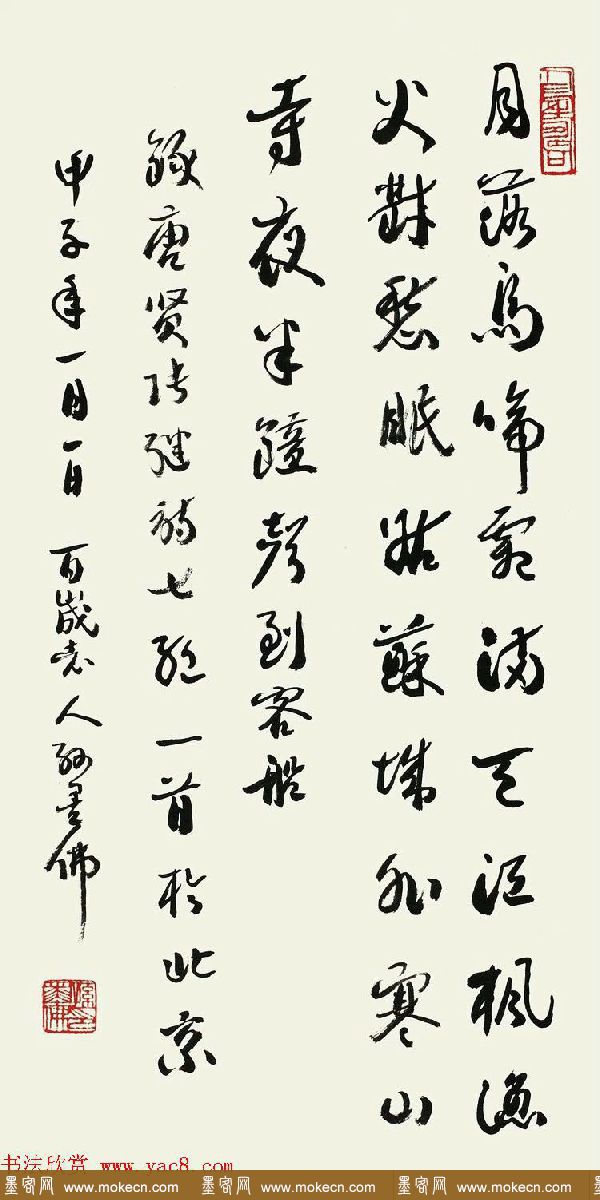 月落烏啼霜滿天江楓漁
火對愁眠姑蘇城外寒山
寺夜半鐘聲到客船
錄唐贤张继诗七绝一首於北京
甲子年一月一日 百歲老人孙墨佛
书法欣赏 www.yac8.com
墨客网 www.mokecn.com 墨客网 www.mokecn.com 墨客网 www.mokecn.com